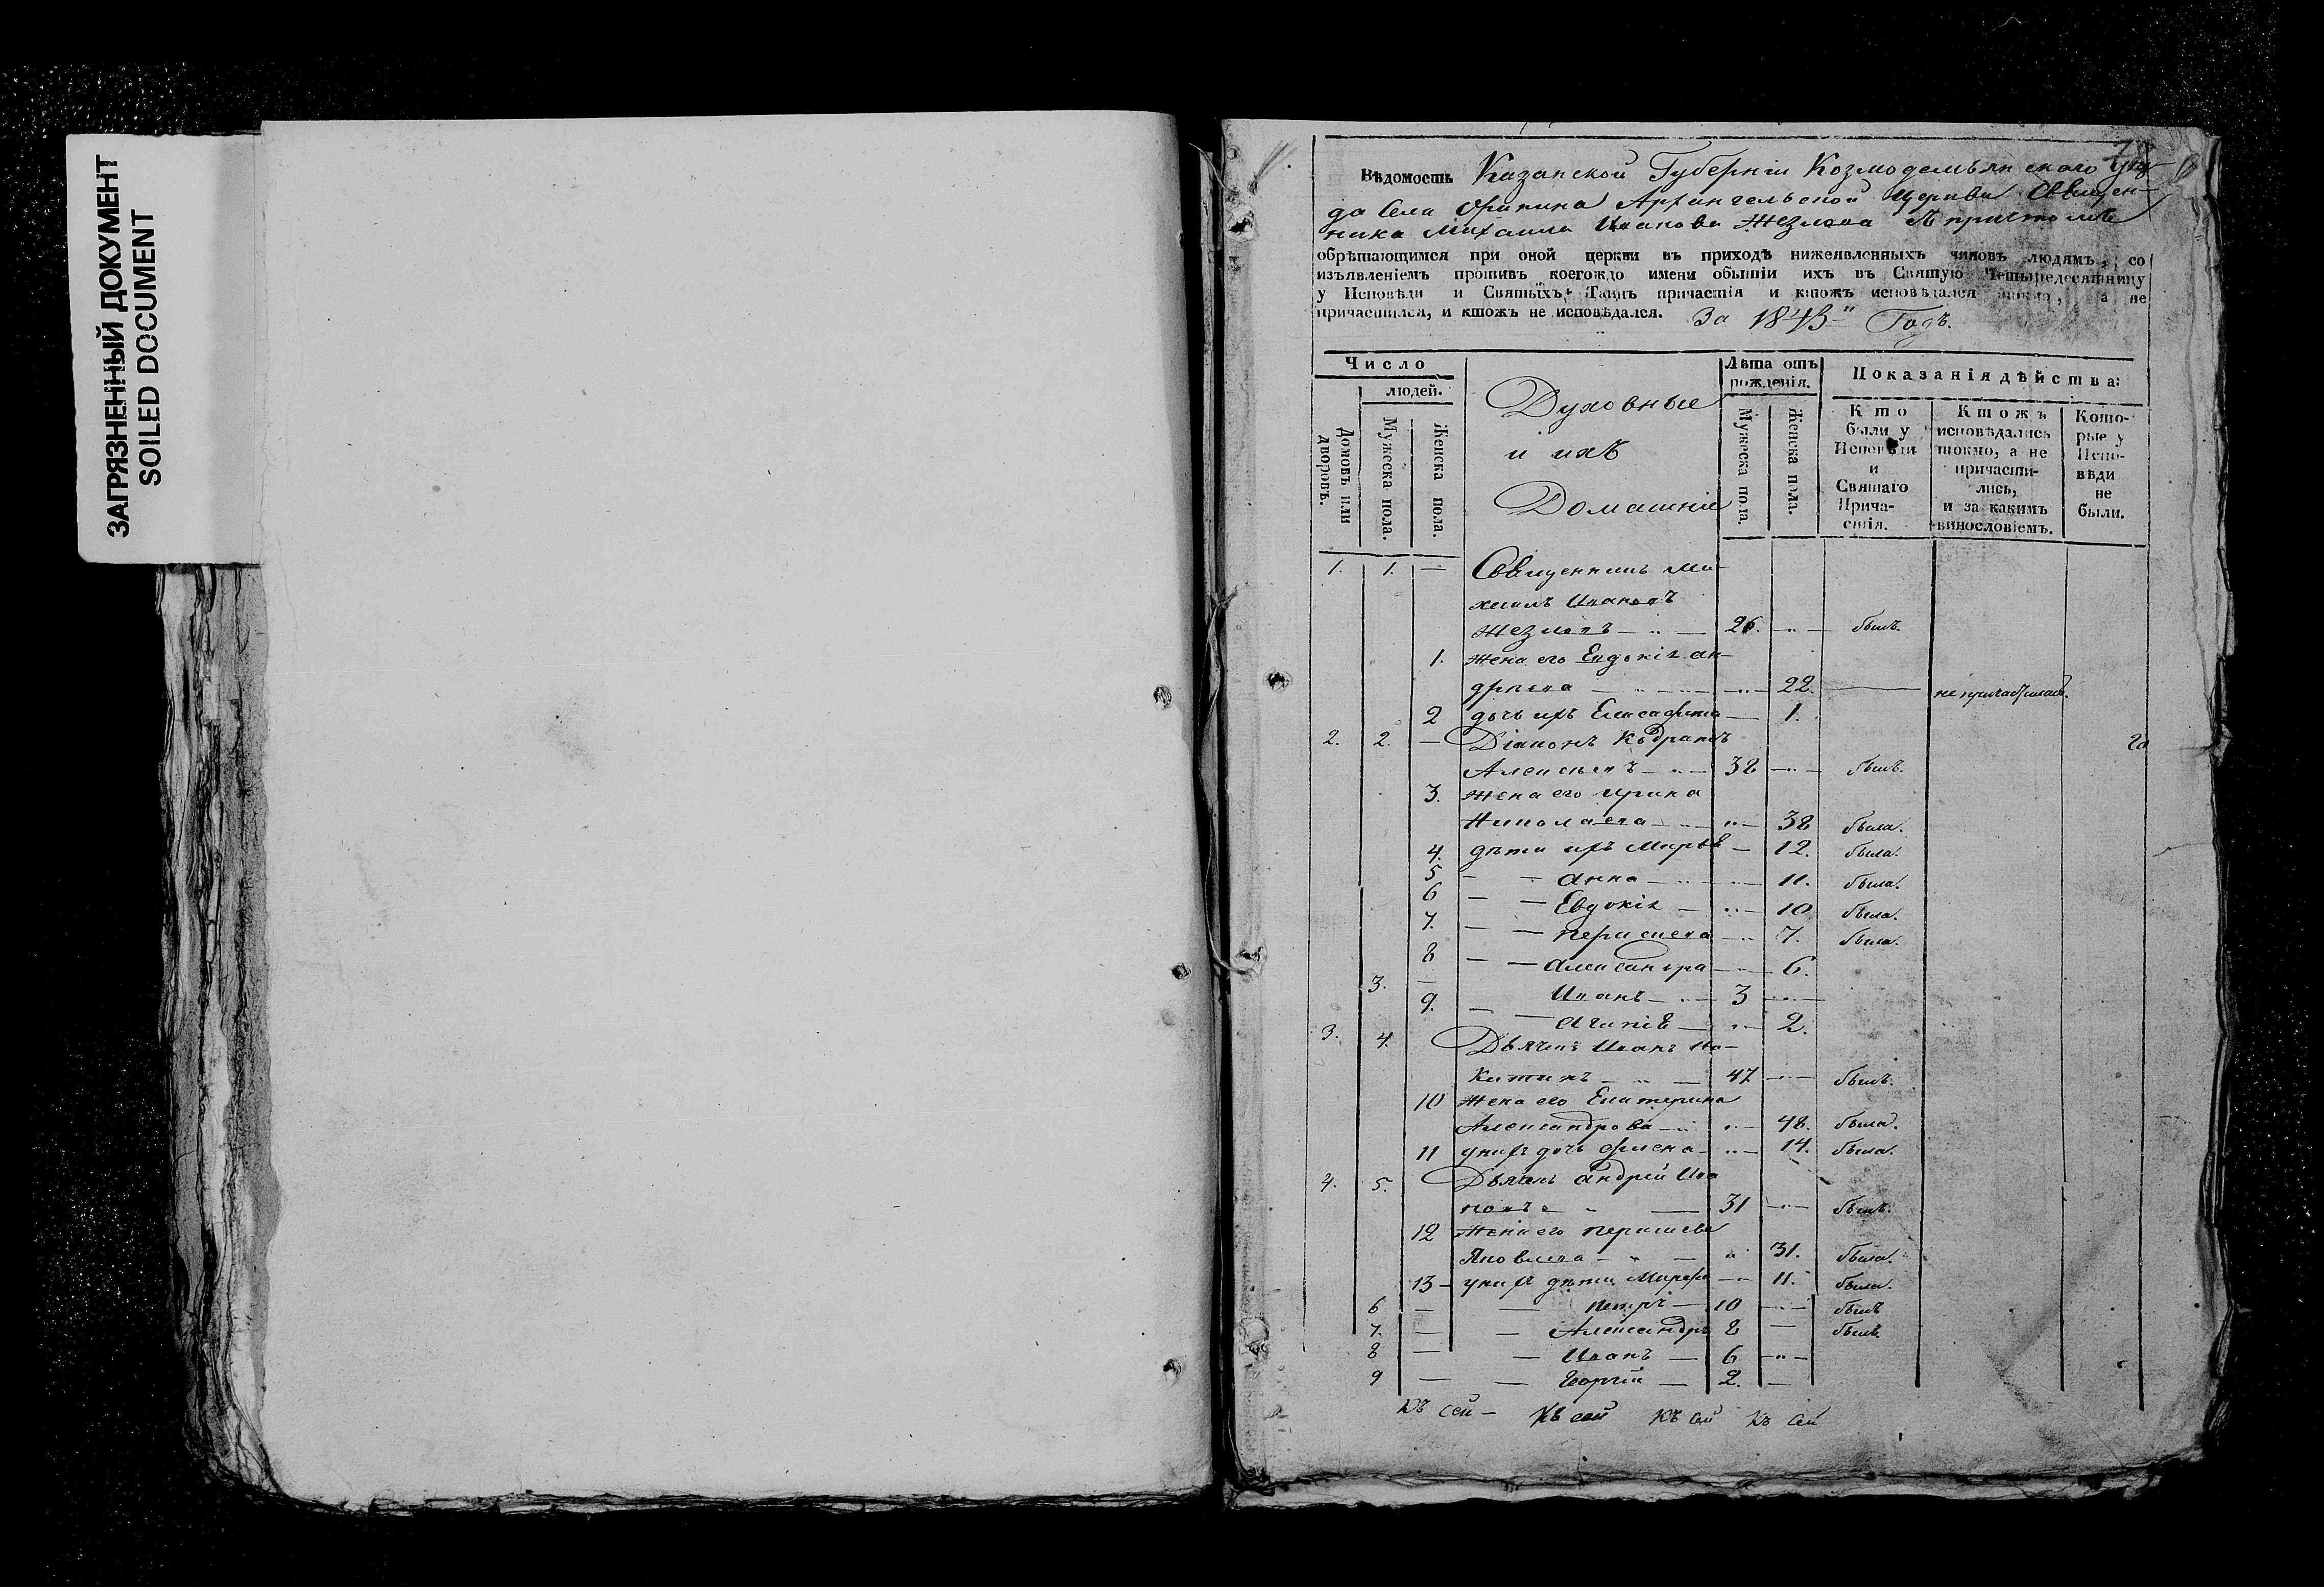 ЗАГРЯЗНЕННЫЙ ДОКУМЕНТ
SOILED DOCUMENT
Вѣдомость Казанской Губерніи Козмодемьянскаго уѣз-
да Села Арх­ангельской Церкви Священ-
ника Михаила Иванова Жезлова съ причтомъ
обрѣтающимся при оной церкви въ приходѣ нижеявленныхъ чиновъ людямъ, со
изъявленіемъ противъ коегождо имени бытіи ихъ въ Святую Четыредесятницу
у Исповѣди и Святыхъ Таинъ причастія и ктожъ исповѣдался токмо, а не
причастился, и ктожъ не исповѣдался. За 1843й Годъ.
Число
людей.
Домовъ или дворовъ.
Мужеска пола.
Женска пола.
Духовные
и ихъ
Домашніе
Лѣта отъ рожденія.
Мужеска пола.
Женска пола.
Показанія дѣйства:
Кто были у Исповѣди и Святаго Прича-стія.
Ктожъ исповѣдались токмо, а не причасти-лись, и за какимъ винословіемъ.
Кото-рые у Испо-вѣди не были.
1. 1. — Священникъ Ми-
хаилъ Ивановъ
Жезловъ — 26. — былъ.
1. Жена его Евдокія Ан-
дреева — 22. — не причастилась.
2 дочь ихъ Елисавета — 1.
2. 2. — Діаконъ
Алексѣевъ — 38 — былъ.
3. Жена его Ирина
Николаева — 38 была.
4. дѣти ихъ Марья — 12. была.
5 — — Анна — 11. была.
6 — — Евдокія — 10 была.
7. — — Параскева — 7. была.
8 — — Александра — 6.
3. — Иванъ — 3 —
9. — — — 2.
3. 4. Дьячекъ Иванъ Ни-
китинъ — 47 — былъ.
10 Жена его Екатерина
Александрова — 48. была.
11 у нихъ дочь Елена — 14. была.
4. 5. Андрей Ива
новъ — 31 — былъ.
12 Жена его
Яковлева — 31. была.
13 — у нихъ дѣти Марфа — 11. была.
6 — — Петръ — 10 — былъ
7. — — Александръ 8 — былъ
8 — — Иванъ — 6 —
9 — — Георгій — 2. —
Къ сей — Къ сей Къ сей Къ сей